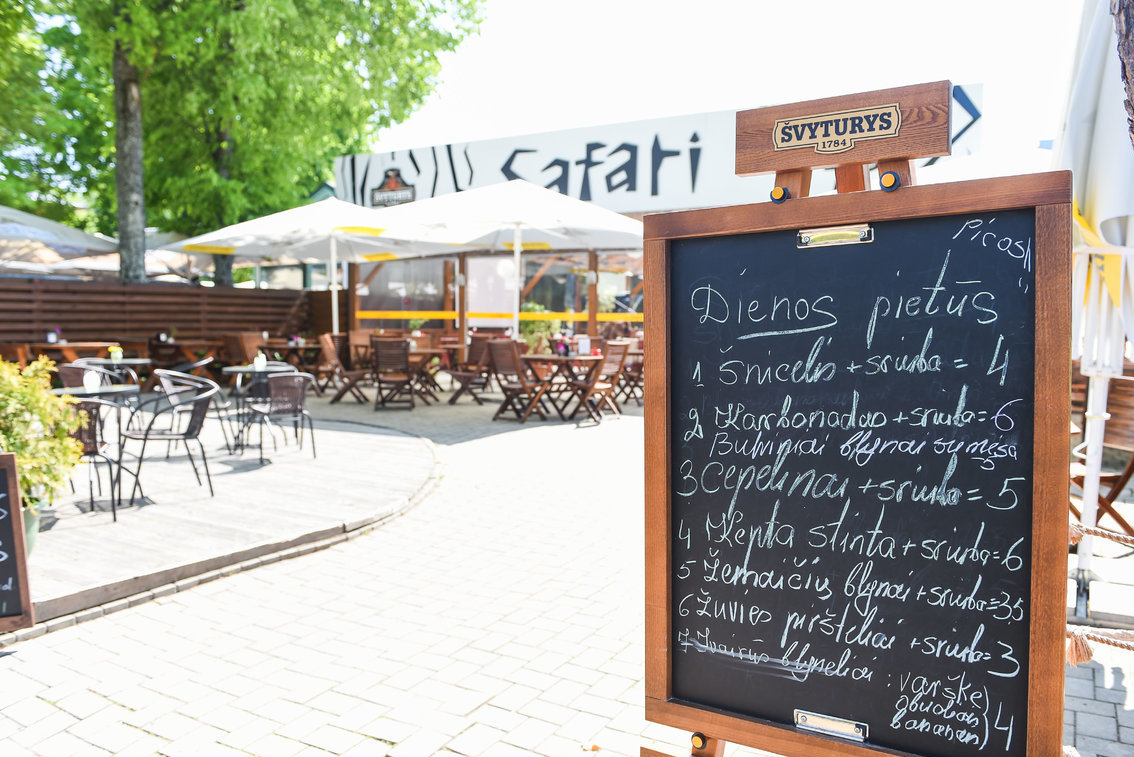 safari
ŠVYTURYS
ŠVYTURYS
1784
Picos
Dienos pietūs
1 Šnicelis + sriuba = 4
2 Karbonadas + sriuba = 6
Bulviniai blynai su mėsa
5
3 Cepelinai + sriuba = 5
4 Kepta stinta + sriuba = 6
5 Žemaičių blynai + sriuba = 3,5
6 Žuvies piršteliai + sriuba = 3
7 Įvairūs blyneliai : varškė)
obuoliai
bananai) 4